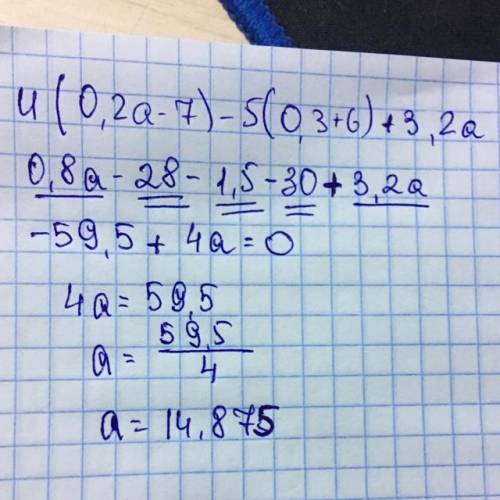 4(0,2a-7)-5(0,3+6)+3,2a
0,8a-28-1,5-30+3,2a
-59,5+4a=0
4a=59,5
a=59,5/4
a=14,875